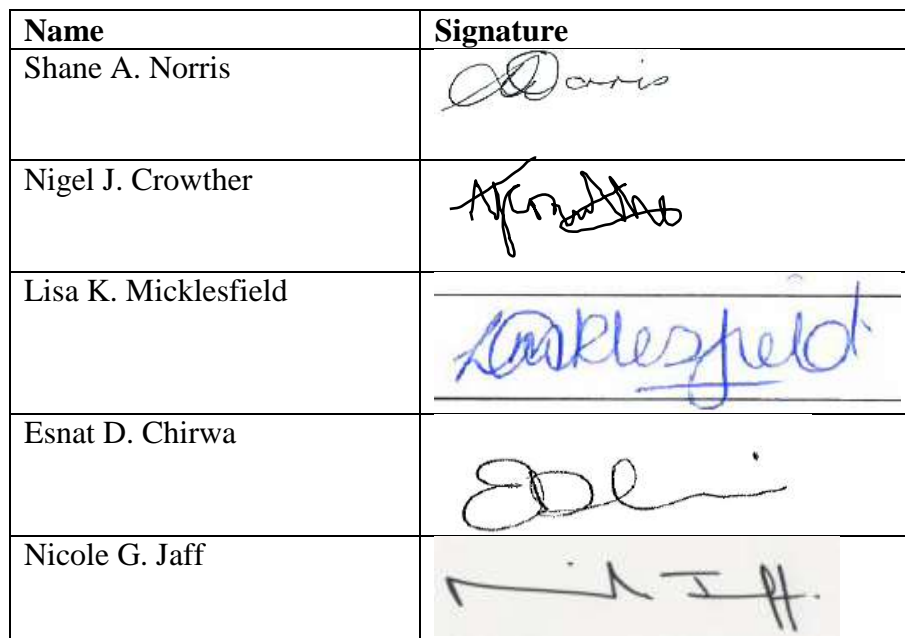 Name Signature
Shane A. Norris
Nigel J. Crowther
Lisa K. Micklesfield
Esnat D. Chirwa
Nicole G. Jaff